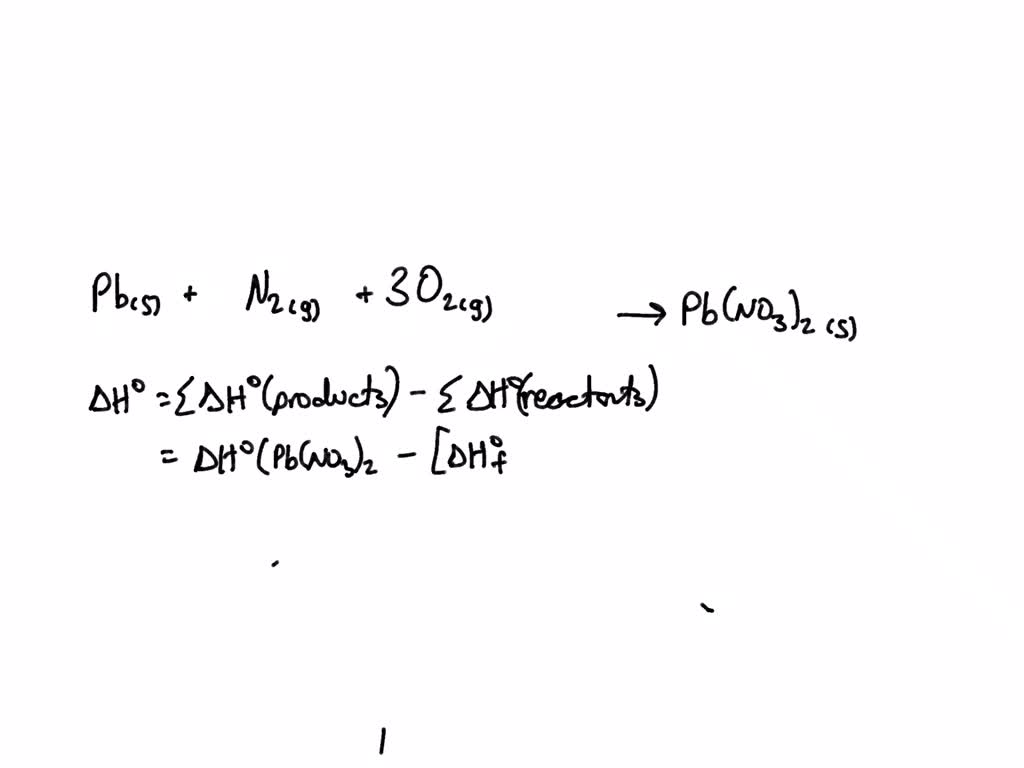 Pb(s) + N₂(g) + 3O₂(g) → Pb(NO₃)₂(s)
ΔH° = Σ ΔH°(products) - Σ ΔH°(reactants)
= ΔH°(Pb(NO₃)₂ - [ΔH°f